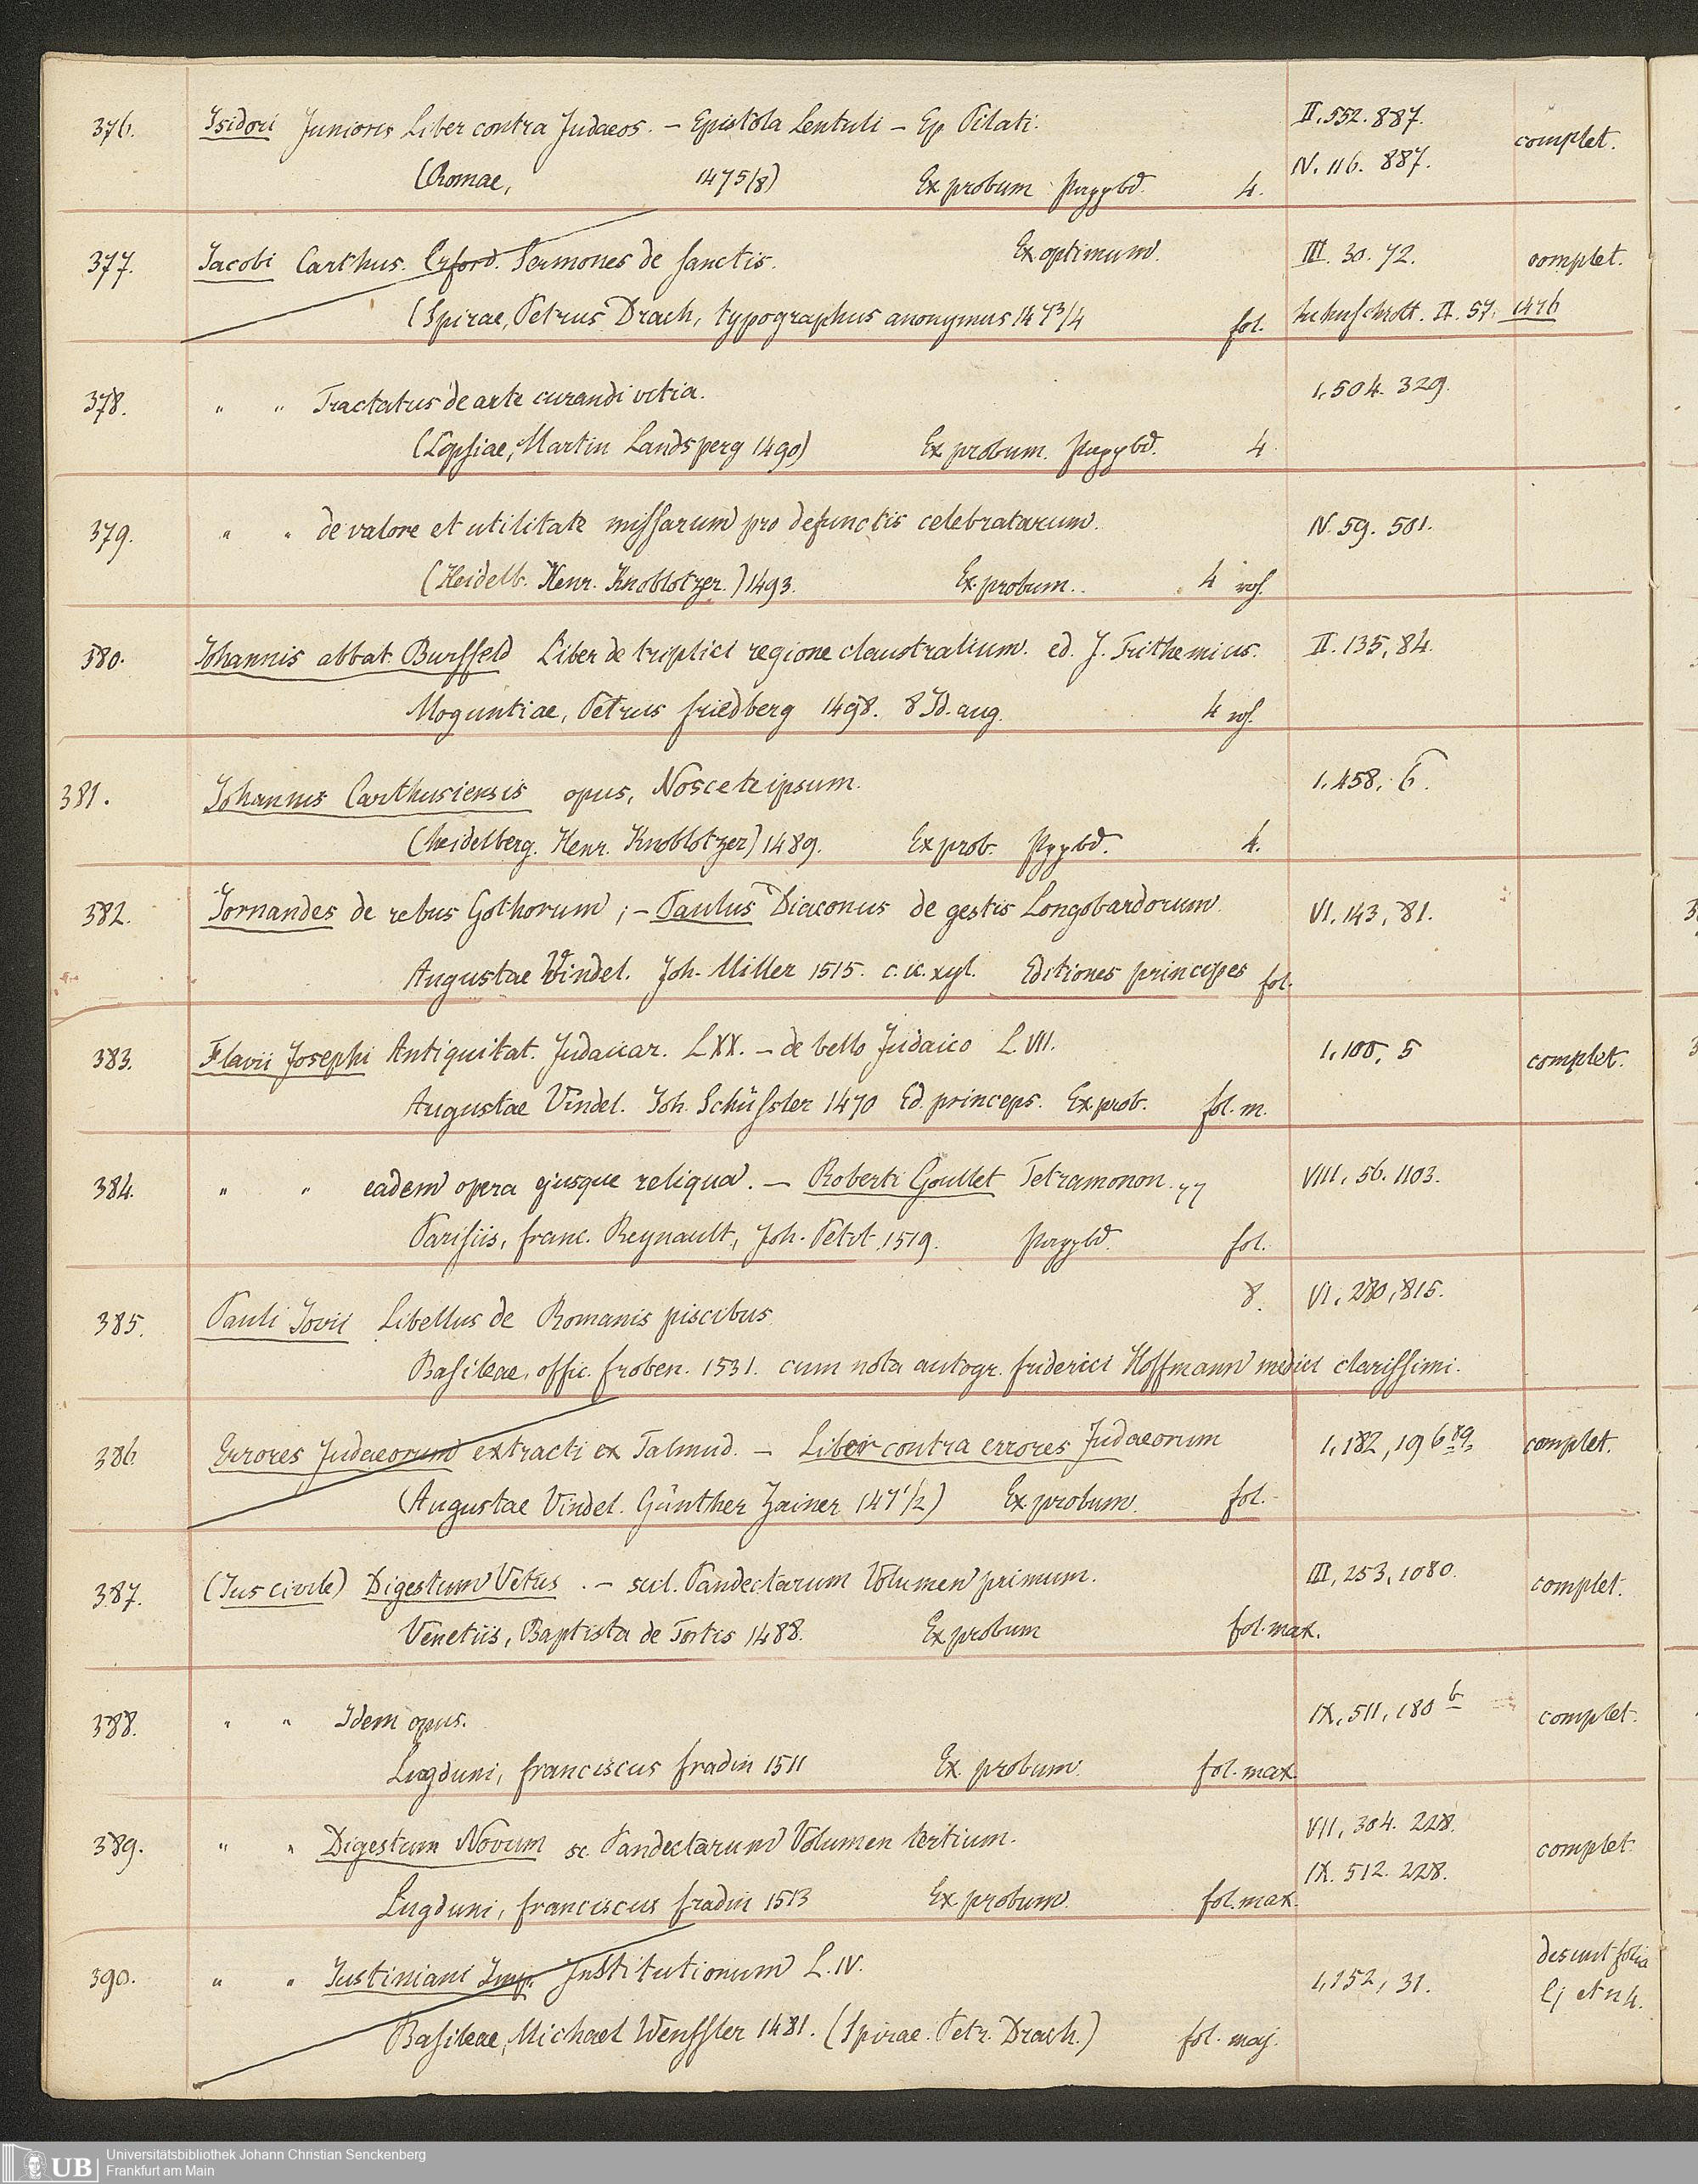 376. Isidori Junioris Liber contra Judaeos. – Epistola Lentuli – Ep Pilati. II. 552. 887. complet.
(Romae, 1475/8) Ex probum Pappbd. 4. IV. 116. 887.
377. Jacobi Carthus. Erford. Sermones de sanctis. Ex optimum. III. 30. 72. complet.
(Spirae, Petrus Drach, typographus anonymus 1473/4 fol. II. 57. 1476
378. " " Tractatus de arte curandi vitia. I. 504. 329.
(Lipsiae, Martin Landsperg 1490) Ex probum. Pappbd. 4
379. " " de valore et utilitate missarum pro defunctis celebratarum. IV. 59. 501.
(Heidelb. Henr. Knoblotzer.) 1493. Ex. probum.. 4 roh.
380. Johannis abbat. Bursfeld Liber de triplici regione claustralium. ed. J. Trithemius. II. 135, 84.
Moguntiae, Petrus Friedberg 1498. 8 Id. aug. 4 roh.
381. Johannis Carthusiensis opus, Nosce te ipsum. I. 458. 6.
(Heidelberg. Henr. Knoblotzer) 1489. Ex prob. Ppppbd. 4.
382. Jornandes de rebus Gothorum; – Paulus Diaconus de gestis Longobardorum. VI. 143, 81.
Augustae Vindel. Joh. Miller 1515. c. ic. xyl. Editiones principes fol.
383. Flavii Josephi Antiquitat. Judaicar. L XX. – de bello Judaico L. VII. I, 100, 5 complet.
Augustae Vindel. Joh. Schüssler 1470 Ed. princeps. Ex prob. fol. m.
384. " " eadem opera ejusque reliqua. – Roberti Goullet Tetramonon. VIII, 56. 1103.
Parisiis, Franc. Reynault, Joh. Petit 1519. Pappbd. fol.
385. Pauli Jovii Libellus de Romanis piscibus. 8. VI, 280, 815.
Basileae, offic. Froben. 1531. cum nota autogr. Friderici Hoffmann medici clarissimi.
386. Errores Judaeorum extracti ex Talmud. – Liber contra errores Judaeorum I, 182, 196 complet.
(Augustae Vindel. Günther Zainer 1471/2) Ex probum. fol.
387. (Jus civile) Digestum Vetus. – scil. Pandectarum Volumen primum. III, 253, 1080. complet.
Venetiis, Baptista de Tortis 1488. Ex probum fol. max.
388. " " Idem opus. IX, 511, 180 b complet.
Lugduni, Franciscus Fradin 1511 Ex. probum. fol. max.
389. " " Digestum Novum sc. Pandectarum Volumen tertium. VII, 304. 228. complet.
Lugduni, Franciscus Fradin 1513 Ex probum. fol. max. IX. 512. 228.
390. " " Justiniani Imp. Institutionum L. IV. I, 152, 31. desunt folia
Basileae, Michael Wenssler 1481. (Spirae. Petr. Drach.) fol. maj. et n 4.
UB Universitätsbibliothek Johann Christian Senckenberg
Frankfurt am Main